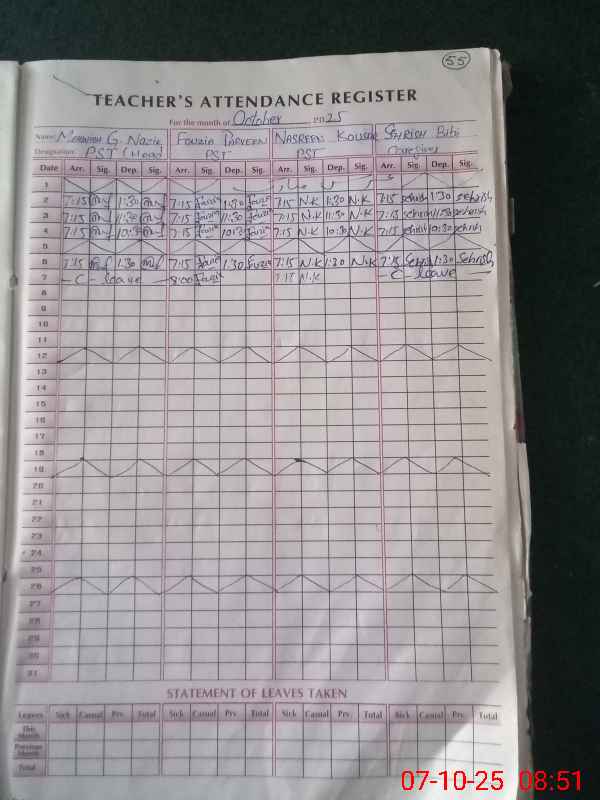 55
TEACHER'S ATTENDANCE REGISTER
For the month of October 2025
Name: G. Nazir FOUZIA PARVEEN NASREEN KOUSAR SEHRISH Bibi
Designation: PST (Head) PST PST Caregiver
Date Arr. Sig. Dep. Sig. Arr. Sig. Dep. Sig. Arr. Sig. Dep. Sig. Arr. Sig. Dep. Sig.
1
2 7:15 1:30 7:15 Fouzia 1:30 Fouzia 7:15 N.K 1:30 N.K 7:15 sehrish 1:30 sehrish
3 7:15 11:30 7:15 Fouzia 11:30 Fouzia 7:15 N.K 11:30 N.K 7:15 sehrish 11:30 sehrish
4 7:15 10:30 7:15 Fouzia 10:30 Fouzia 7:15 N.K 10:30 N.K 7:15 sehrish 10:30 sehrish
5
6 7:15 1:30 7:15 Fouzia 1:30 Fouzia 7:15 N.K 1:30 N.K 7:15 Sehrish 1:30 Sehrish
7 - C - leave 8:00 Fouzia 7:15 N.K - C - leave
8
9
10
11
12
13
14
15
16
17
18
19
20
21
22
23
24
25
26
27
28
29
30
31
STATEMENT OF LEAVES TAKEN
Leaves Sick Casual Prv. Total Sick Casual Prv. Total Sick Casual Prv. Total Sick Casual Prv. Total
This Month
Previous Month
Total
07-10-25 08:51